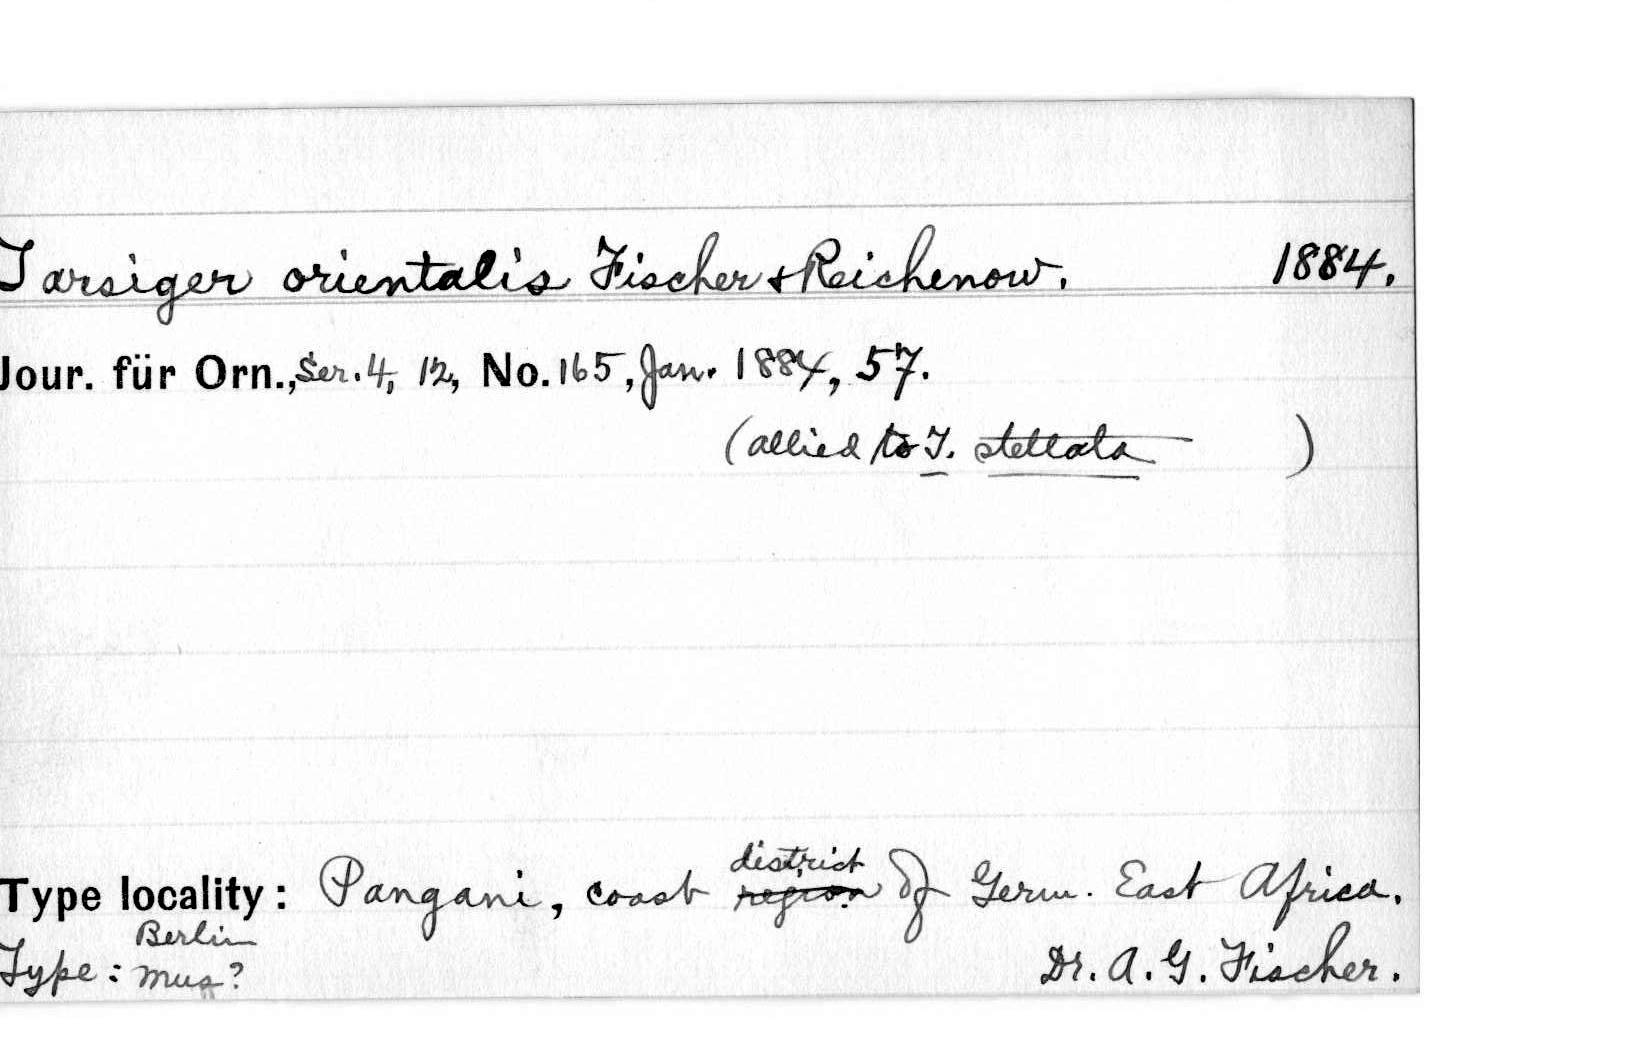 Tarsiger orientalis Fischer & Reichenow. 1884.
Jour. für Orn., Ser. 4, 12, No. 165, Jan. 1884, 57.
(allied to T. stellata )
district
Type locality: Pangani, coast region of Germ. East Africa.
Berlin
Type: Mus? Dr. A. G. Fischer.